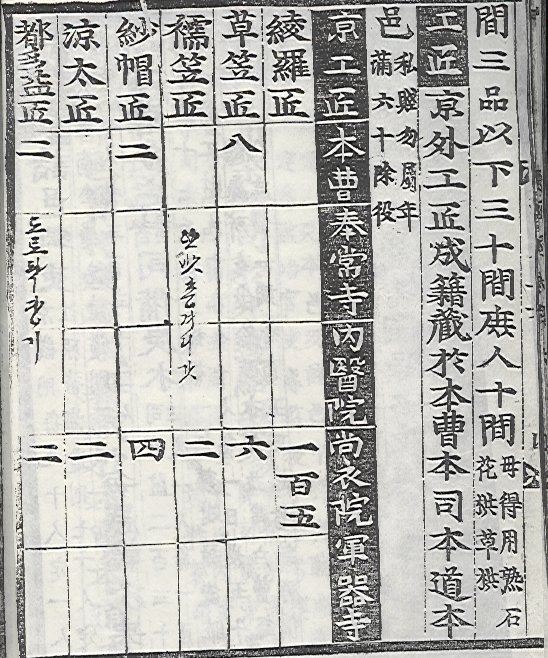 間三品以下三十間庶人十間
毋得用熟石
花拱草拱
工匠京外工匠成籍藏於本曹本司本道本
邑
私賤勿屬年
滿六十除役
京工匠本曹奉常寺內醫院尚衣院軍器寺
綾羅匠 一百五
草笠匠 八 六
襦笠匠 二
紗帽匠 二 四
涼太匠 二
都多益匠 二 二